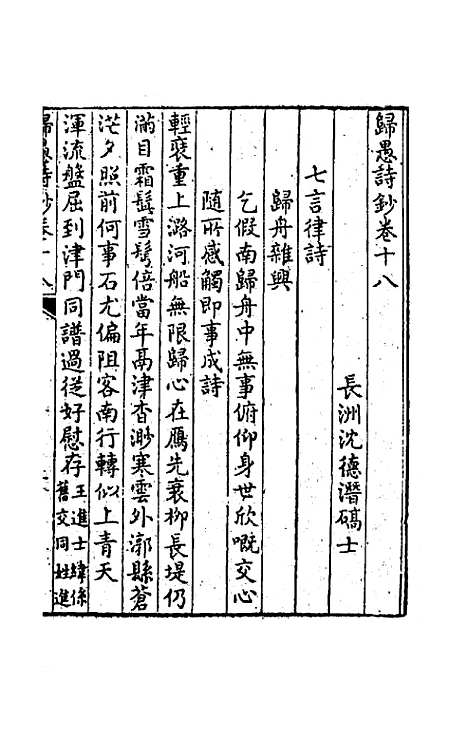 歸愚詩鈔卷十八
長洲沈德潛碻士
七言律詩
歸舟雜興
乞假南歸舟中無事俯仰身世欣嘅交心
隨所感觸即事成詩
輕裘重上潞河船無限歸心在鴈先衰柳長堤仍
滿目霜鬚雪鬢倍當年鬲津杳渺寒雲外漷縣蒼
茫夕照前何事石尤偏阻客南行轉似上青天
渾流盤屈到津門同譜過從好慰存王進士緯係
舊交同姓進
歸愚詩鈔卷十八